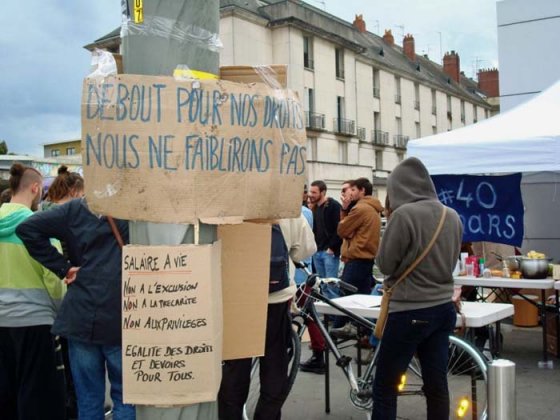 DEBOUT POUR NOS DROITS
NOUS NE FAIBLIRONS PAS
SALAIRE A VIE
NON A L'EXCLUSION
NON A LA PRECARITE
NON AUX PRIVILEGES
EGALITE DES DROITS
ET DEVOIRS
POUR TOUS.
#40
MARS